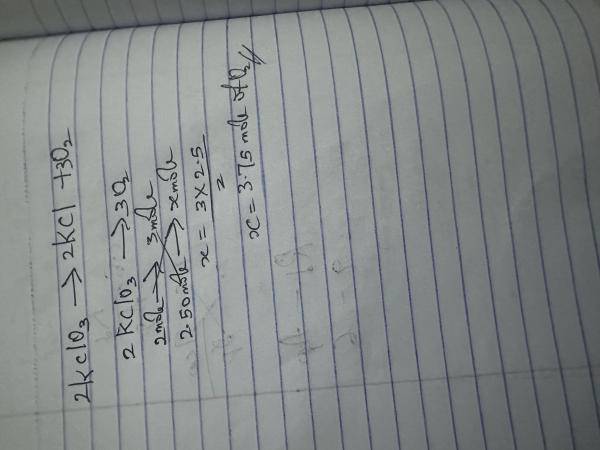 2KClO₃ → 2KCl + 3O₂
2KClO₃ → 3O₂
2mole → 3mole
2.50mole → x mole
x = 3 × 2.5 / 2
x = 3.75 mole of O₂ //